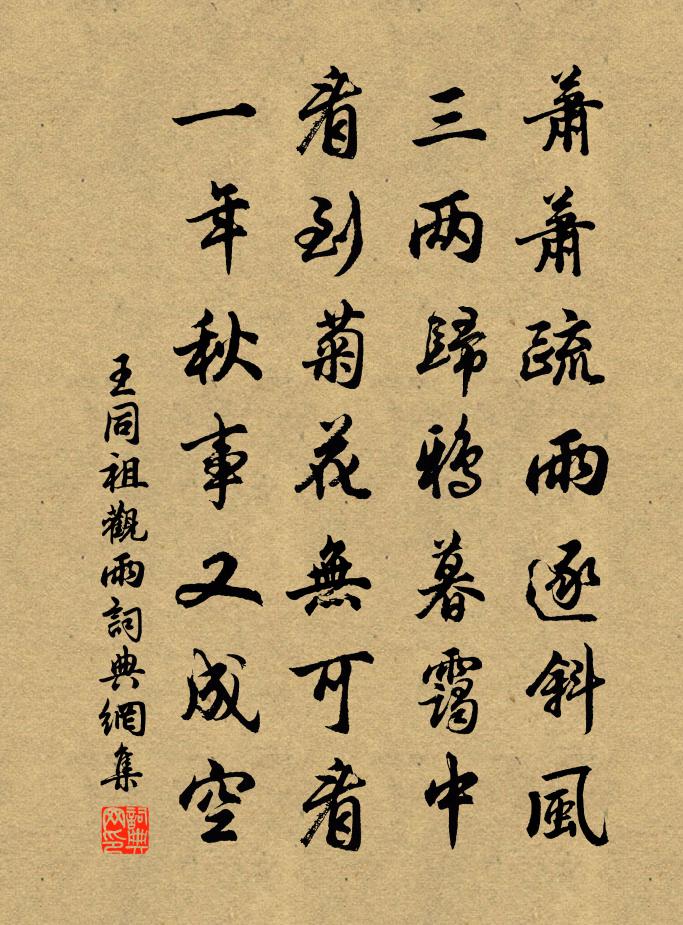 蕭蕭疏雨逐斜風
三两歸鴉暮靄中
看到菊花無可看
一年秋事又成空
王同祖觀雨詞典網集
詞典网印